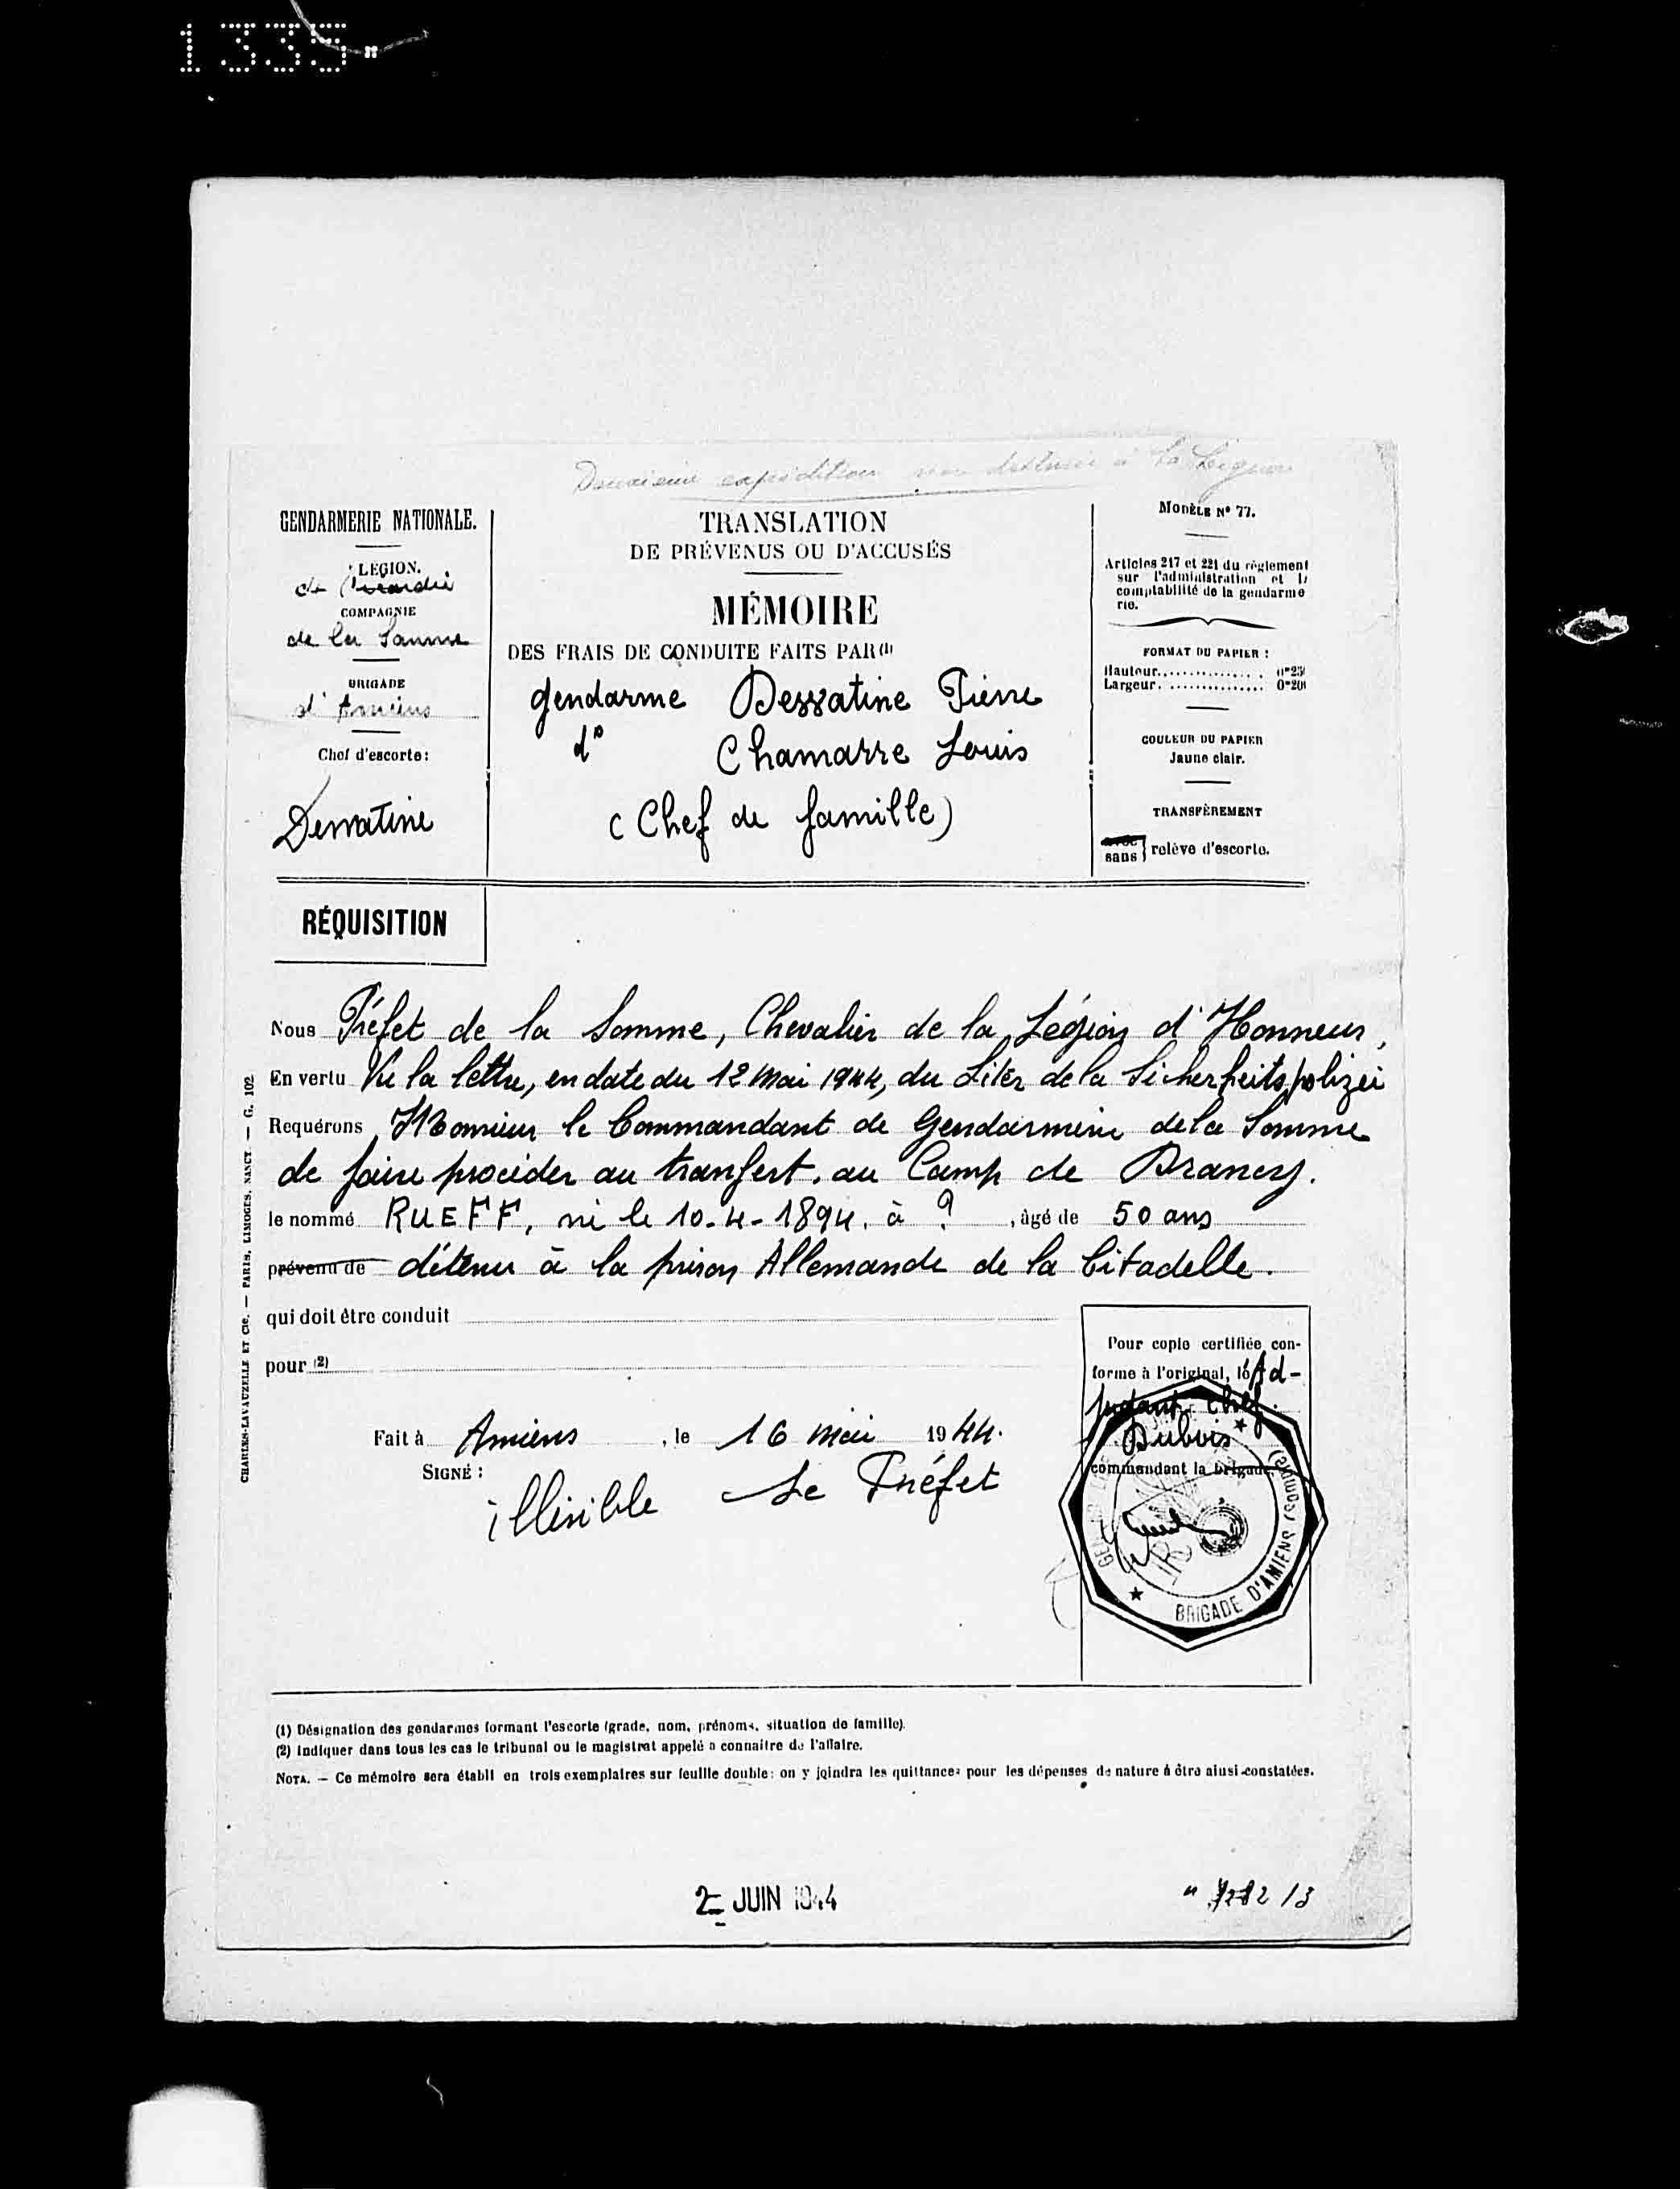 1335
Deuxième expédition non destinée à la
GENDARMERIE NATIONALE.
LEGION.
de Picardie
COMPAGNIE
de la Somme
BRIGADE
d'Amiens
Chef d'escorte:
Dessatine
TRANSLATION
DE PRÉVENUS OU D'ACCUSÉS
MÉMOIRE
DES FRAIS DE CONDUITE FAITS PAR (1)
gendarme Dessatine Pierre
d° Chamarre Louis
(Chef de famille)
MODÈLE N° 77.
Articles 217 et 221 du règlement
sur l'administration et la
comptabilité de la gendarme
rie.
FORMAT DU PAPIER :
Hauteur
Largeur
COULEUR DU PAPIER
Jaune clair.
TRANSFÈREMENT
avec
sans } relève d'escorte.
RÉQUISITION
Nous Préfet de la Somme, Chevalier de la Légion d'Honneur,
En vertu Vu la lettre, en date du 12 mai 1944, du de la Sicherheitspolizei
Requérons Monsieur le Commandant de Gendarmerie de la Somme
de faire procéder au tranfert, au Camp de Drancy.
le nommé RUEFF, né le 10-4-1894, à ? , âgé de 50 ans
prévenu de détenu à la prison Allemande de la Citadelle.
qui doit être conduit
pour (2)
Fait à Amiens , le 16 mai 1944.
SIGNÉ :
illisible Le Préfet
Pour copie certifiée con-
forme à l'original, le Ad-
judant-chef
Dubois
commandant la brigade.
BRIGADE D'AMIENS (SOMME)
CHARLES-LAVAUZELLE ET Cie. — PARIS, LIMOGES, NANCY — G. 102
(1) Désignation des gendarmes formant l'escorte (grade, nom, prénoms, situation de famille).
(2) Indiquer dans tous les cas le tribunal ou le magistrat appelé à connaître de l'affaire.
NOTA. — Ce mémoire sera établi en trois exemplaires sur feuille double: on y joindra les quittances pour les dépenses de nature à être ainsi constatées.
2 JUIN 1944